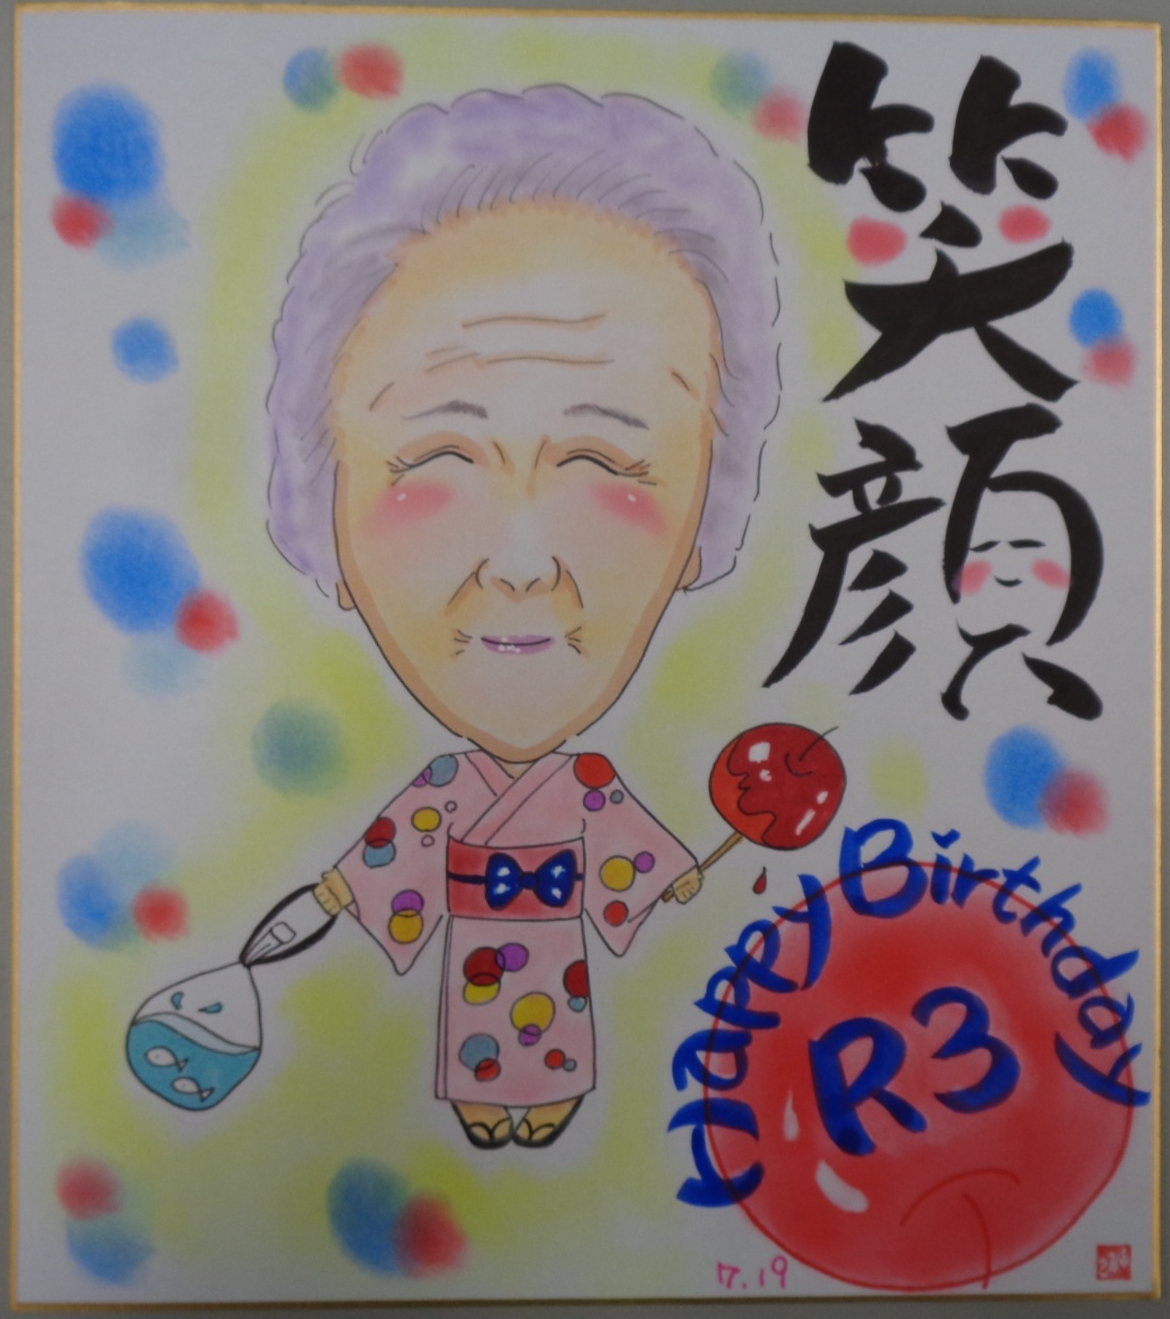 笑顔
Happy Birthday
R3
7.19